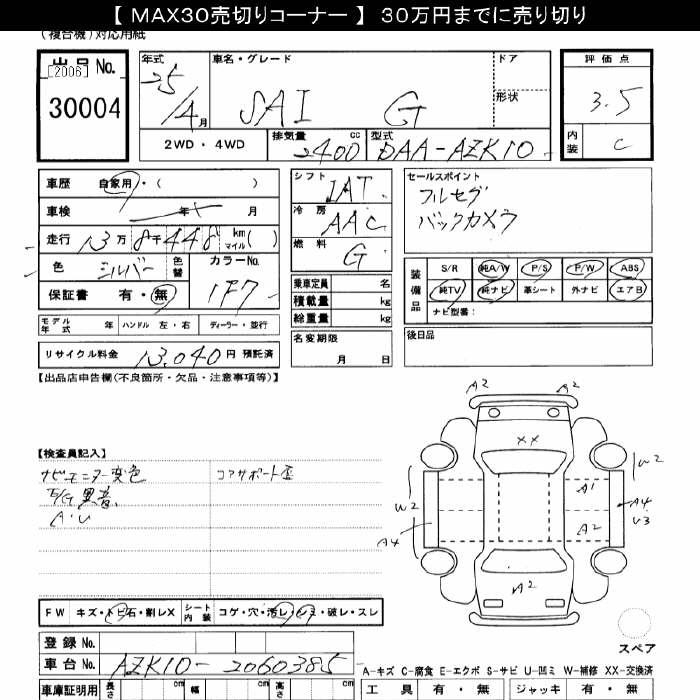 【 MAX30売切りコーナー 】 30万円までに売り切り
(複合機)対応用紙
出品 No.
[2006]
30004
年式 25/4月
車名・グレード SAI G
ドア
形状
2WD・4WD
排気量 2400 cc
型式 DAA-AZK10
評価点 3.5
内装 C
車歴 自家用・( )
車検 年 月
走行 13万 8千 448 km マイル( )
色 シルバー 色替 カラーNo. 1F7
保証書 有・無
モデル年式 年 ハンドル 左・右 ディーラー・並行
リサイクル料金 13,040 円 預託済
シフト IAT
冷房 AAC
燃料 G
乗車定員 名
積載量 kg
総重量 kg
名変期限
月 日
セールスポイント
フルセグ
バックカメラ
装備品 S/R 純A/W P/S P/W ABS
純TV 純ナビ 革シート 外ナビ エアB
ナビ型番:
後日品
【出品店申告欄(不良箇所・欠品・注意事項等)】
【検査員記入】
ナビモニター変色 コアサポート歪
E/G異音
A・U
A2 A2
XX
W2 W2
A1 A4
A4 A2 U3
A2
スペア
FW キズ・トビ石・割レX シート内装 コゲ・穴・汚レ・シミ・破レ・スレ
登録 No.
車台 No. AZK10-2060385
車庫証明用 長さ cm 幅 cm 高さ cm
A-キズ C-腐食 E-エクボ S-サビ U-凹ミ W-補修 XX-交換済
工具 有・無 ジャッキ 有・無